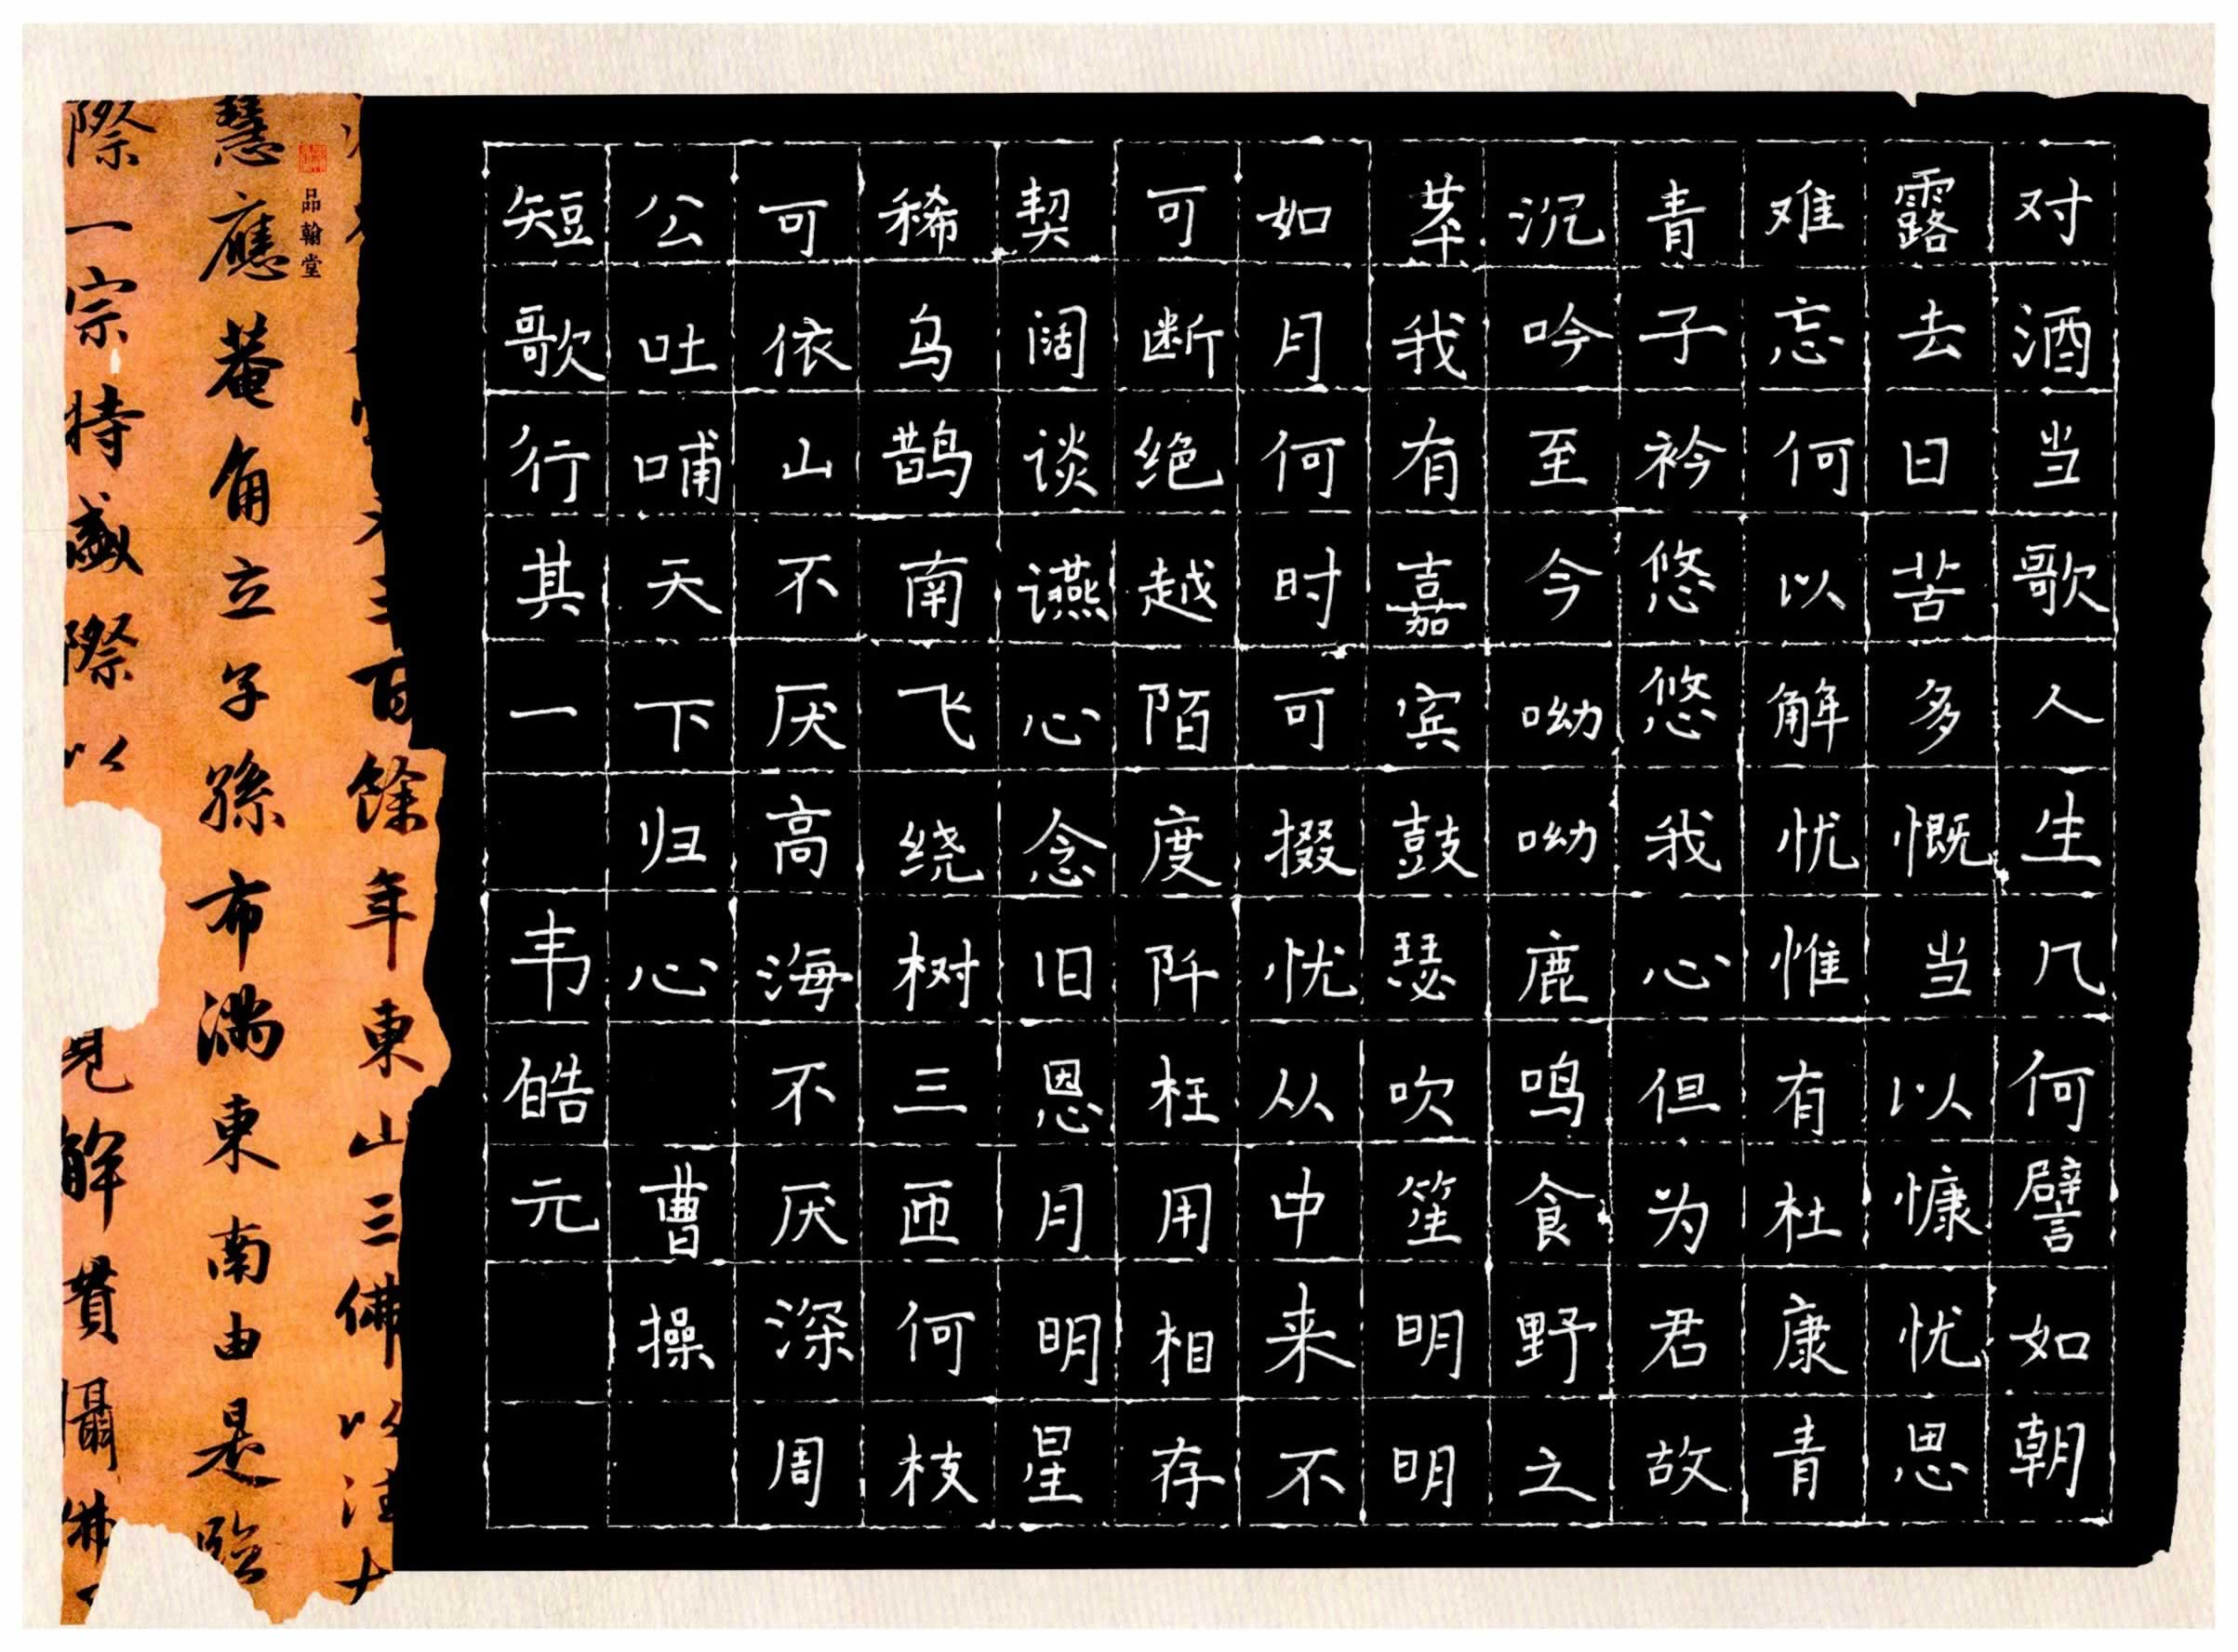 对酒当歌人生几何譬如朝
露去日苦多慨当以慷忧思
难忘何以解忧惟有杜康青
青子衿悠悠我心但为君故
沉吟至今呦呦鹿鸣食野之
苹我有嘉宾鼓瑟吹笙明明
如月何时可掇忧从中来不
可断绝越陌度阡枉用相存
契阔谈䜩心念旧恩月明星
稀乌鹊南飞绕树三匝何枝
可依山不厌高海不厌深周
公吐哺天下归心 曹操
短歌行其一 韦皓元
三百餘年東山三佛以法
品翰堂
慧應菴角立子孫布滿東南由是臨
際一宗特盛際以 見解貫攝佛